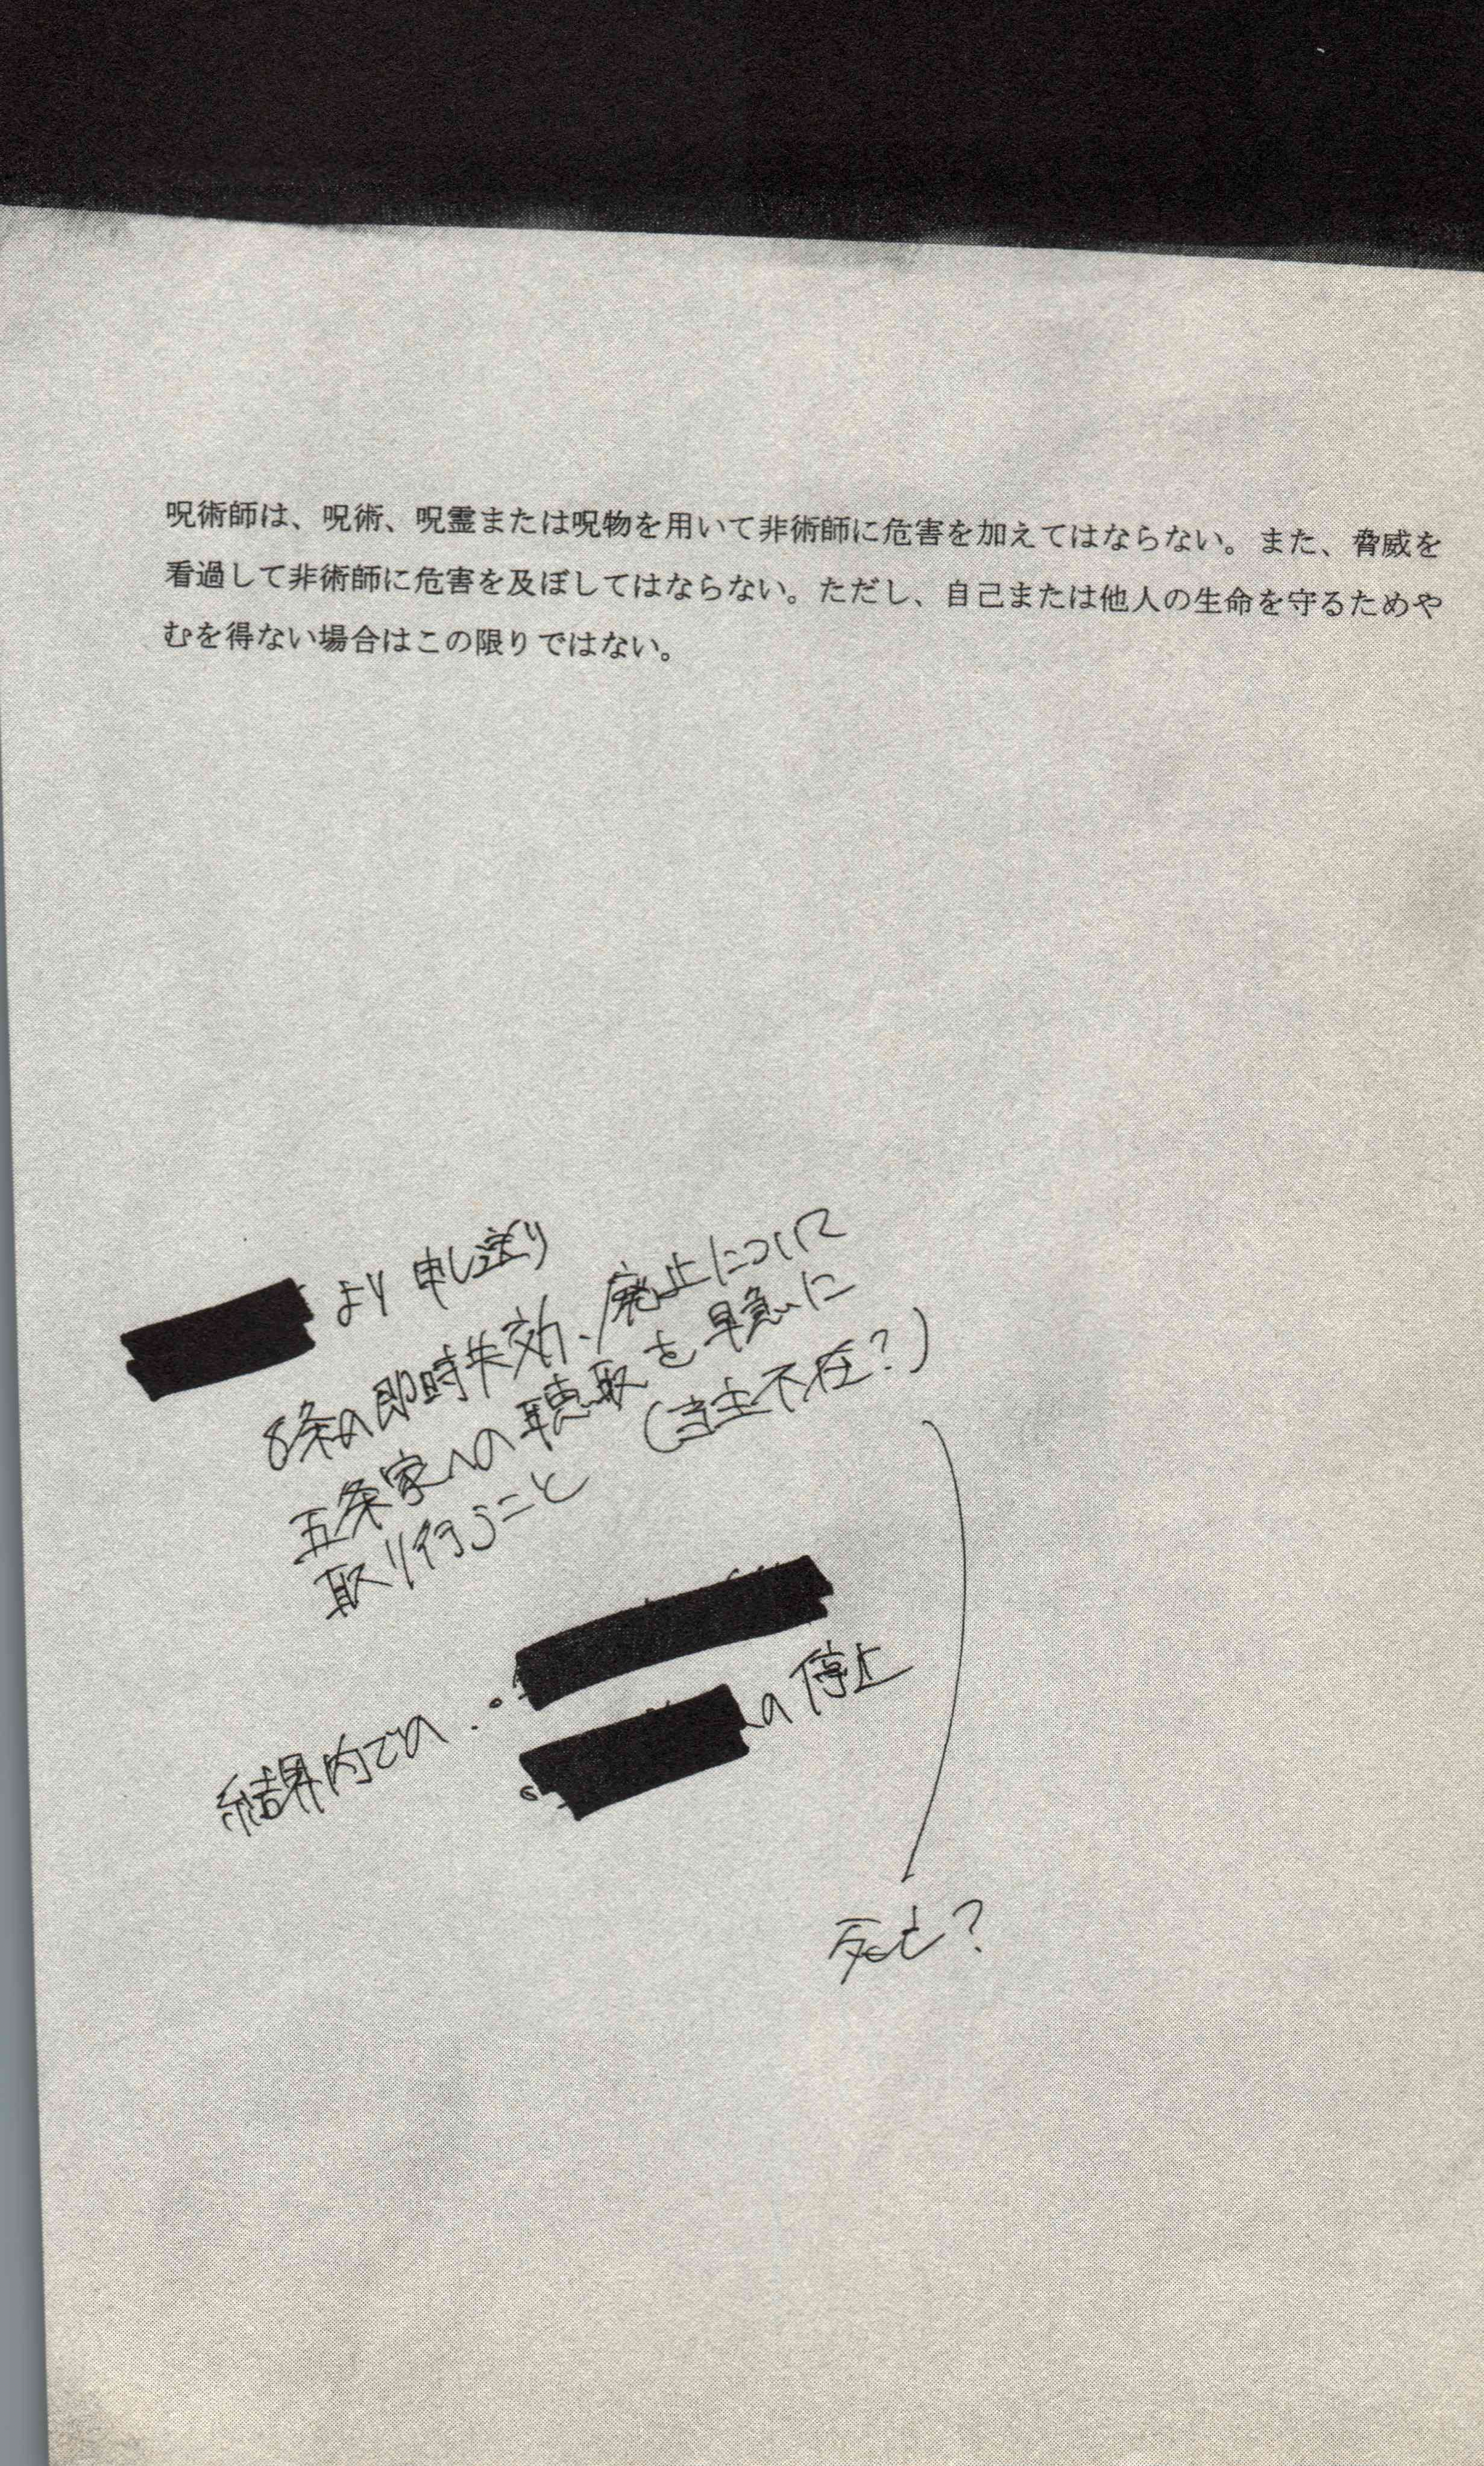 呪術師は、呪術、呪霊または呪物を用いて非術師に危害を加えてはならない。また、脅威を
看過して非術師に危害を及ぼしてはならない。ただし、自己または他人の生命を守るためや
むを得ない場合はこの限りではない。
より申し送り
8条の即時失効、廃止について
五条家への聴取を早急に
取り行うこと (当主不在?)
結界内での
の停止
死亡?